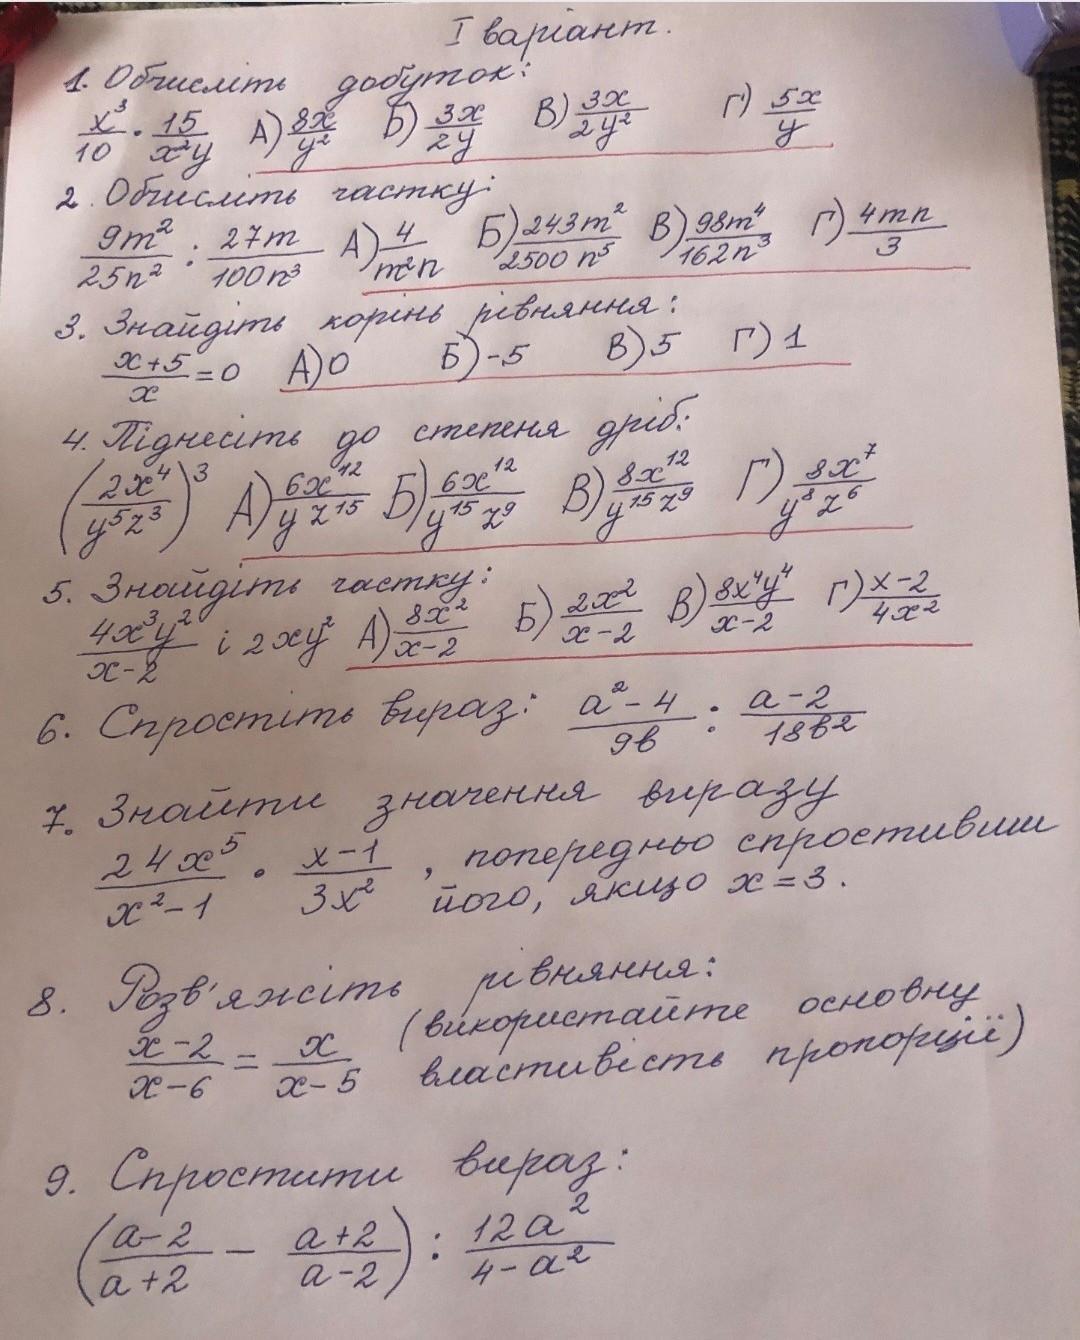 I варіант.
1. Обчисліть добуток:
x³/10 · 15/x²y А) 8x/y² Б) 3x/2y В) 3x/2y² Г) 5x/y
2. Обчисліть частку:
9m²/25n² : 27m/100n³ А) 4/m²n Б) 243m²/2500n⁵ В) 98m⁴/162n³ Г) 4mn/3
3. Знайдіть корінь рівняння:
x+5/x = 0 А) 0 Б) -5 В) 5 Г) 1
4. Піднесіть до степеня дріб:
(2x⁴/y⁵z³)³ А) 6x¹²/yz¹⁵ Б) 6x¹²/y¹⁵z⁹ В) 8x¹²/y¹⁵z⁹ Г) 8x⁷/y⁸z⁶
5. Знайдіть частку:
4x³y²/x-2 і 2xy² А) 8x²/x-2 Б) 2x²/x-2 В) 8x⁴y⁴/x-2 Г) x-2/4x²
6. Спростіть вираз: a²-4/9b : a-2/18b²
7. Знайти значення виразу
24x⁵/x²-1 · x-1/3x² , попередньо спростивши
його, якщо x=3.
8. Розв'яжіть рівняння:
x-2/x-6 = x/x-5 (використайте основну
властивість пропорції)
9. Спростити вираз:
(a-2/a+2 - a+2/a-2) : 12a²/4-a²